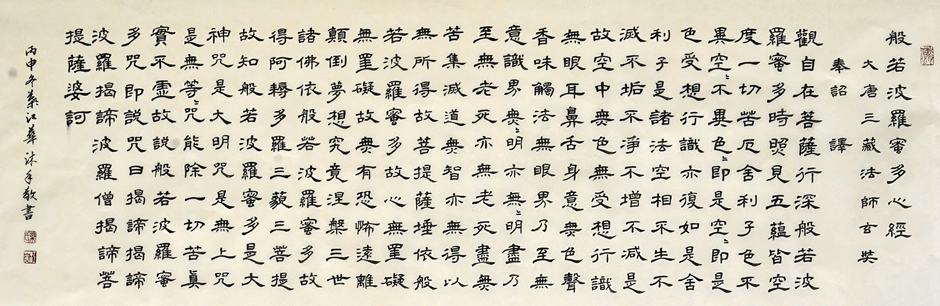 般若波羅蜜多心經
大唐三藏法師玄奘
奉詔譯
觀自在菩薩行深般若波
羅蜜多時照見五蘊皆空
度一切苦厄舍利子色不
異空〻不異色〻即是空〻即是
色受想行識亦復如是舍
利子是諸法空相不生不
滅不垢不淨不增不減是
故空中無色無受想行識
無眼耳鼻舌身意無色聲
香味觸法無眼界乃至無
意識界無〻明亦無〻明盡乃
至無老死亦無老死盡無
苦集滅道無智亦無得以
無所得故菩提薩埵依般
若波羅蜜多故心無罣礙
無罣礙故無有恐怖遠離
顛倒夢想究竟涅槃三世
諸佛依般若波羅蜜多故
得阿耨多羅三藐三菩提
故知般若波羅蜜多是大
神咒是大明咒是無上咒
是無等〻咒能除一切苦真
實不虛故說般若波羅蜜
多咒即說咒曰揭諦揭諦
波羅揭諦波羅僧揭諦菩
提薩婆訶
丙申年江華沐手敬書